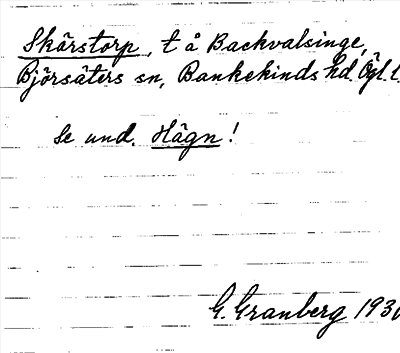 Skärstorp, t å Backvalsinge,
Björsäters sn, Bankekinds hd. Ögl. l.
Se und. Hägn!
G. Granberg 193